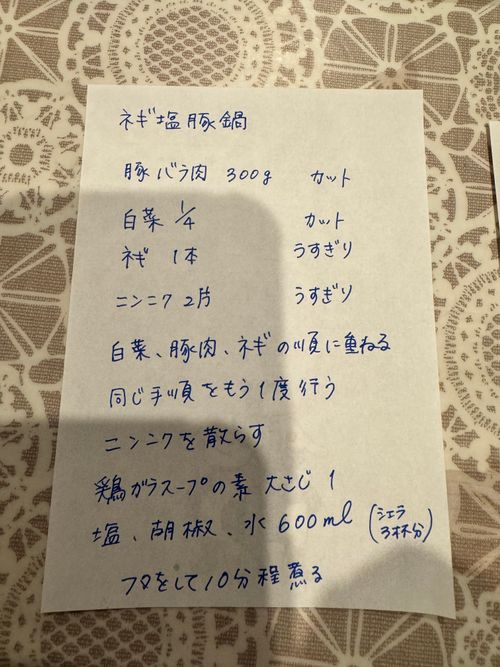 ネギ塩豚鍋
豚バラ肉 300g カット
白菜 1/4 カット
ネギ 1本 うすぎり
ニンニク 2片 うすぎり
白菜、豚肉、ネギの順に重ねる
同じ手順をもう1度行う
ニンニクを散らす
鶏ガラスープの素 大さじ 1
塩、胡椒、水600ml (シェラ3杯分)
フタをして10分程煮る